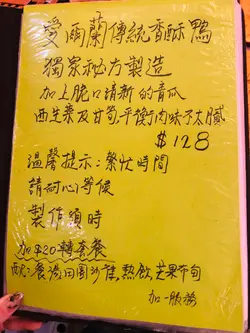 愛爾蘭傳統香酥鴨
獨家秘方製造
加上脆口清新的青瓜
西芹菜及甘筍平衡肉味不太膩
$128
溫馨提示:繁忙時間
請耐心等候
製作須時
加$20轉套餐
餐湯田園沙律,熱飲,芒果布甸
加一服務